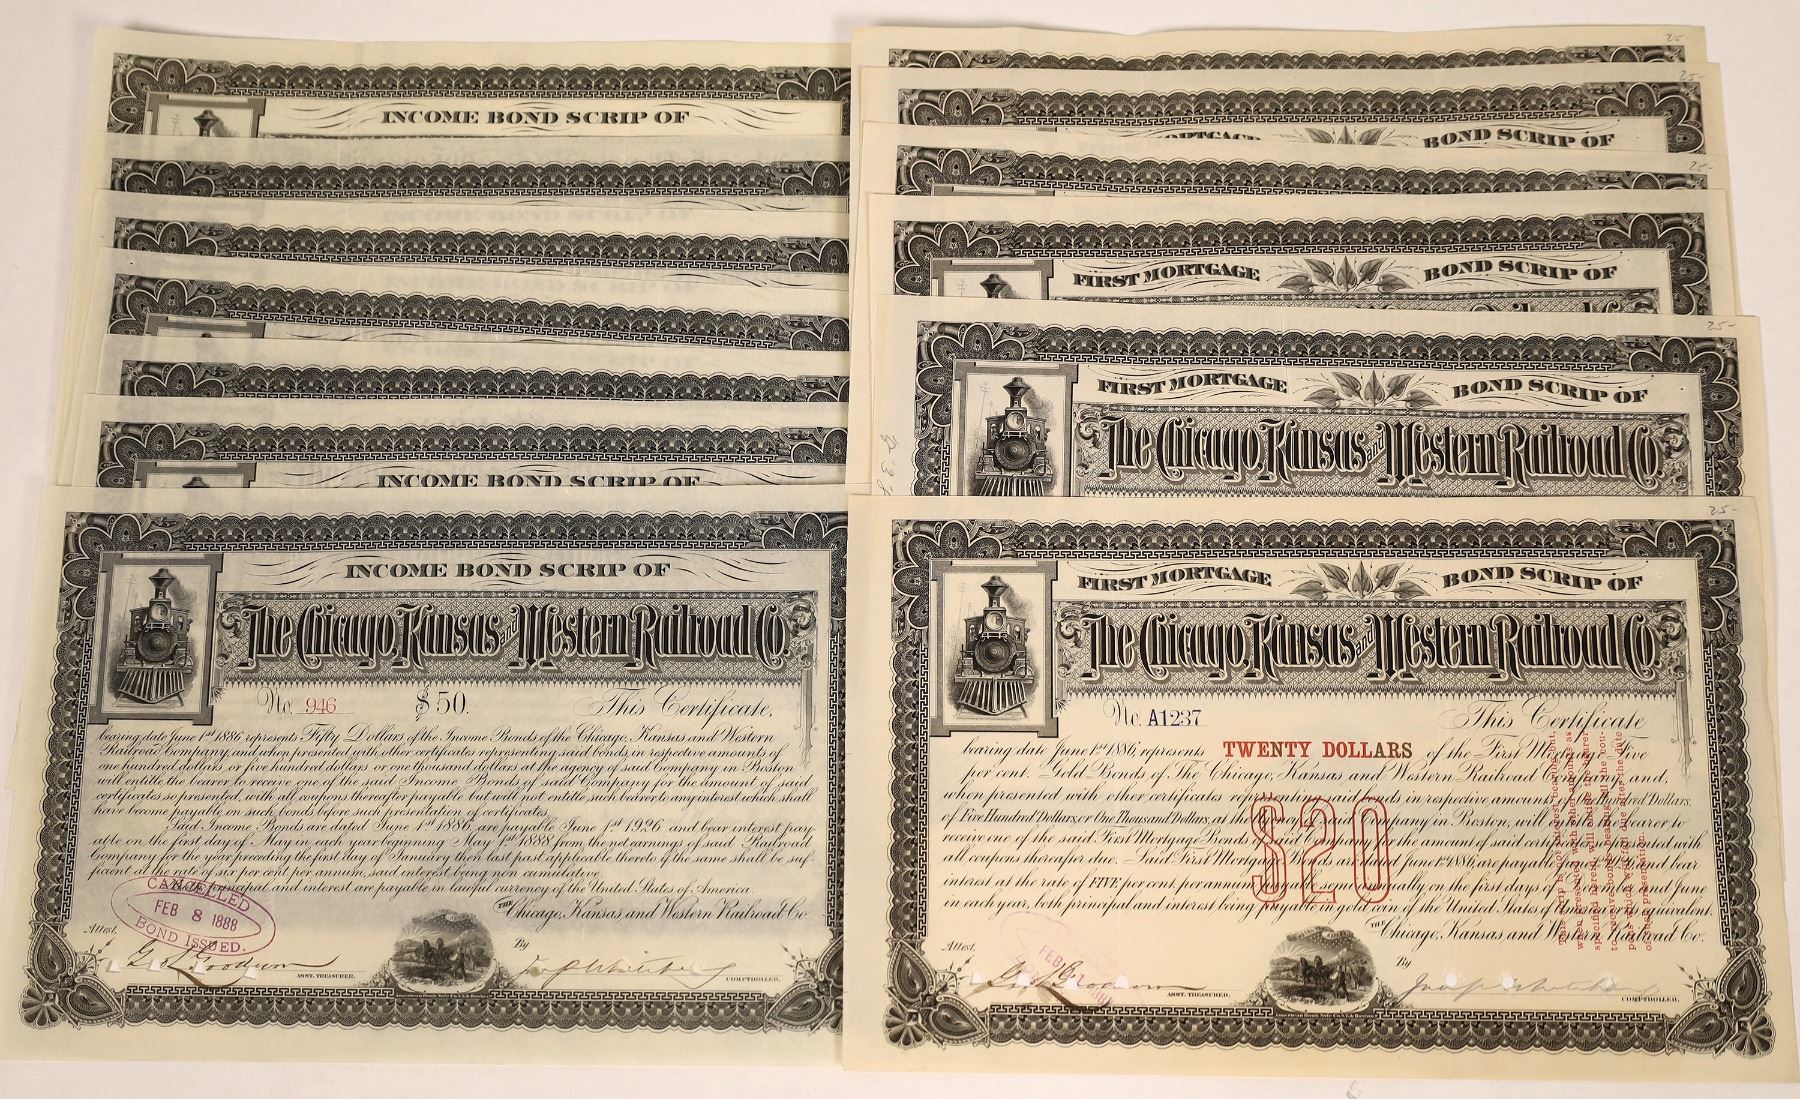 INCOME BOND SCRIP OF
INCOME BOND SCRIP OF
INCOME BOND SCRIP OF
The Chicago, Kansas and Western Railroad Co.
No. 946 $50. This Certificate,
bearing date June 1st 1886 represents Fifty Dollars of the Income Bonds of the Chicago, Kansas and Western
Railroad Company, and when presented with other certificates representing said bonds in respective amounts of
one hundred dollars, or five hundred dollars or one thousand dollars at the agency of said Company in Boston
will entitle the bearer to receive one of the said Income Bonds of said Company for the amount of said
certificates so presented, with all coupons thereafter payable but will not entitle such bearer to any interest which shall
have become payable on such bonds before such presentation of certificates.
Said Income Bonds are dated June 1st 1886, are payable June 1st 1926 and bear interest pay-
able on the first day of May in each year beginning May 1st 1888 from the net earnings of said Railroad
Company for the year preceding the first day of January then last past applicable thereto if the same shall be suf-
ficient at the rate of six per cent per annum, said interest being non cumulative.
Both principal and interest are payable in lawful currency of the United States of America.
THE Chicago, Kansas and Western Railroad Co.
CANCELLED
FEB 8 1888
BOND ISSUED.
Attest, By
ASST. TREASURER. COMPTROLLER.
25-
25-
BOND SCRIP OF
25-
FIRST MORTGAGE BOND SCRIP OF
25-
FIRST MORTGAGE BOND SCRIP OF
The Chicago, Kansas and Western Railroad Co.
25-
FIRST MORTGAGE BOND SCRIP OF
The Chicago, Kansas and Western Railroad Co.
No. A1237 This Certificate
bearing date June 1st 1886 represents TWENTY DOLLARS of the First Mortgage Five
per cent. Gold Bonds of The Chicago, Kansas and Western Railroad Company, and,
when presented with other certificates representing said bonds in respective amounts of One Hundred Dollars,
of Five Hundred Dollars, or One Thousand Dollars, at the agency of said Company in Boston, will entitle the bearer to
receive one of the said First Mortgage Bonds of said Company for the amount of said certificates presented with
all coupons thereafter due. Said First Mortgage Bonds are dated June 1st 1886, are payable and bear
interest at the rate of FIVE per cent. per annum, payable semi-annually on the first days of December and June
in each year, both principal and interest being payable in gold coin of the United States of America or its equivalent.
THE Chicago, Kansas, and Western Railroad Co.
$20
This scrip is not interest bearing, but,
when presented with other amounts as
specified herein, will entitle the bearer
to receive bonds bearing all the cou-
pons which will fall due after the date
of such presentation.
FEB 11
Attest, By
ASST. TREASURER. COMPTROLLER.